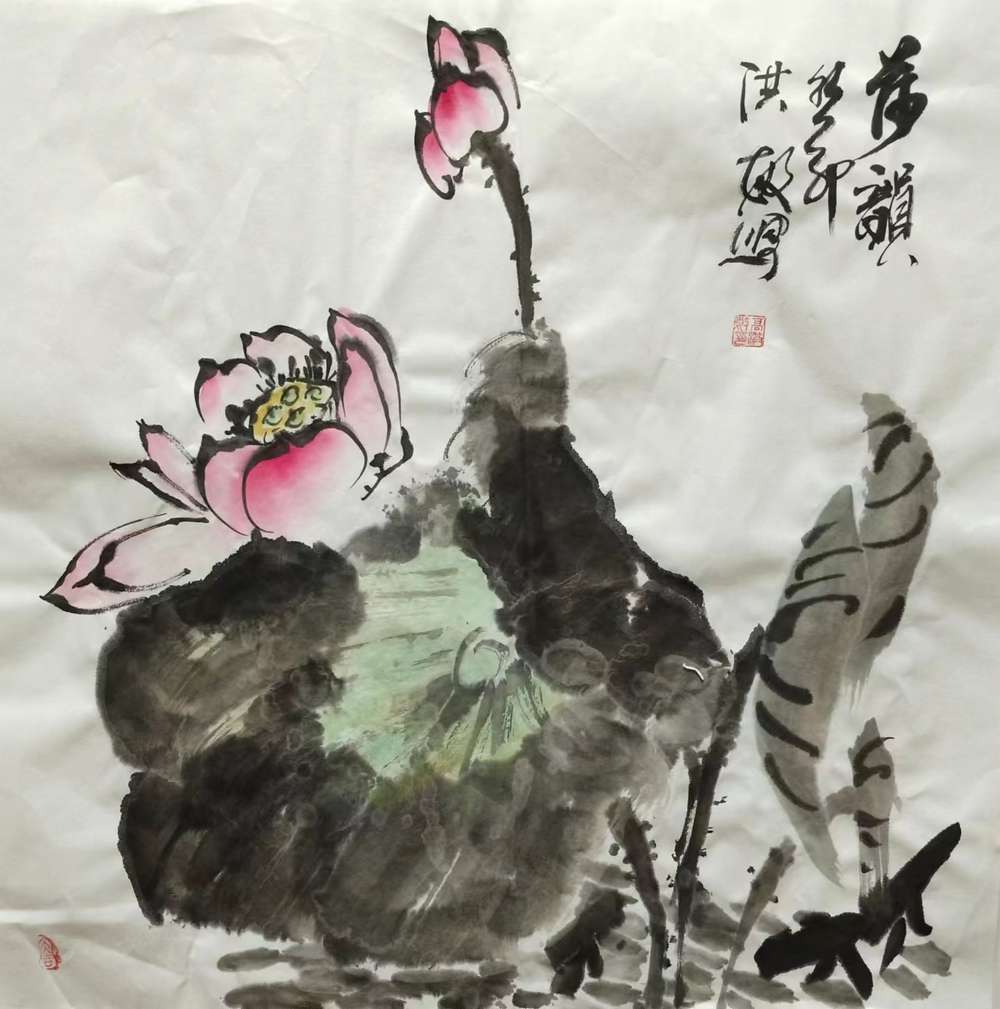 荷韻
癸卯
洪敏寫